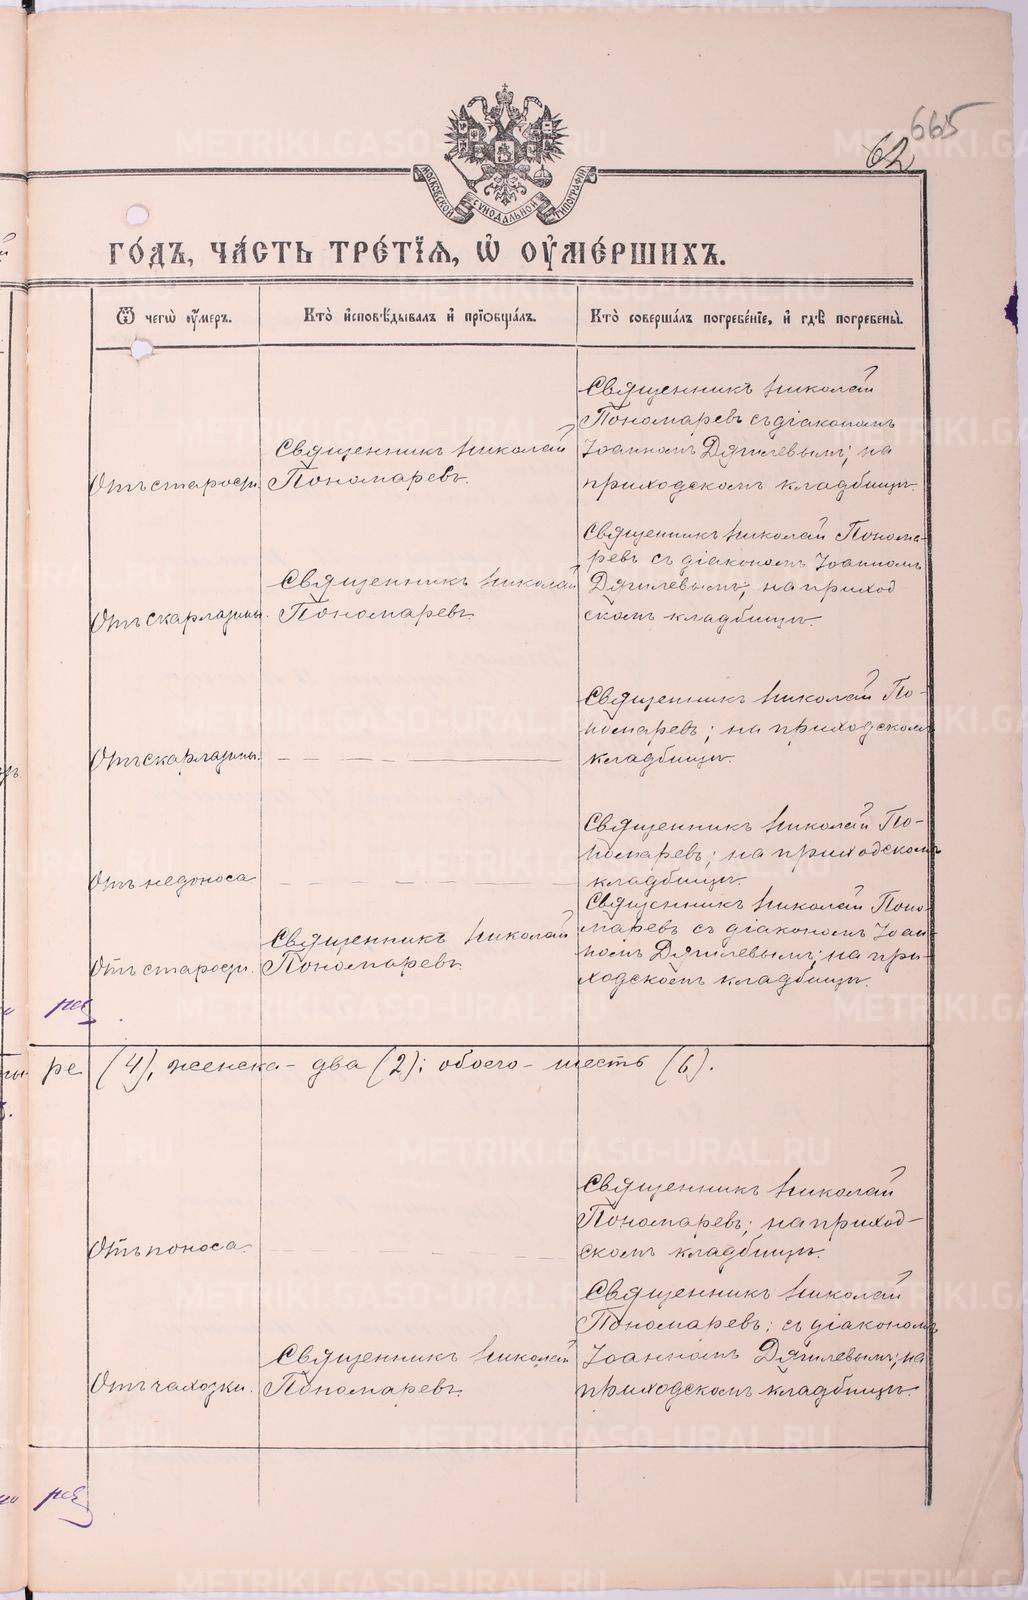 665
62
МОСКОВСКОЙ СѴНОДАЛЬНОЙ ТИПОГРАФІИ
ГО́ДЪ, ЧА́СТЬ ТРЕ́ТІѦ, Ѡ҆ ОУ҆МЕ́РШИХЪ.
Ѿ чегѡ̀ оу҆́меръ.
Кто̀ и҆сповѣ́дывалъ и҆ прїѡбща́лъ.
Кто̀ соверша́лъ погребе́нїе, и҆ гдѣ̀ погребены̀.
Отъ старости.
Священникъ Николай
Пономаревъ.
Священникъ Николай
Пономаревъ съ діакономъ
Іоанномъ Дягилевымъ; на
приходскомъ кладбищѣ.
Отъ скарлатины.
Священникъ Николай
Пономаревъ.
Священникъ Николай Понома-
ревъ съ діакономъ Іоанномъ
Дягилевымъ; на приход
скомъ кладбищѣ.
Отъ скарлатины.
Священникъ Николай По-
номаревъ; на приходскомъ
кладбищѣ.
Отъ недоноса
Священникъ Николай По-
номаревъ; на приходскомъ
кладбищѣ.
Отъ старости.
Священникъ Николай
Пономаревъ.
Священникъ Николай Поно-
маревъ съ діакономъ Іоан-
номъ Дягилевымъ; на при-
ходскомъ кладбищѣ.
ре (4), женска - два (2); обоего - шесть (6).
Отъ поноса.
Священникъ Николай
Пономаревъ; на приход-
скомъ кладбищѣ.
Отъ чахотки.
Священникъ Николай
Пономаревъ.
Священникъ Николай
Пономаревъ; съ діакономъ
Іоанномъ Дягилевымъ; на
приходскомъ кладбищѣ.
METRIKI.GASO-URAL.RU